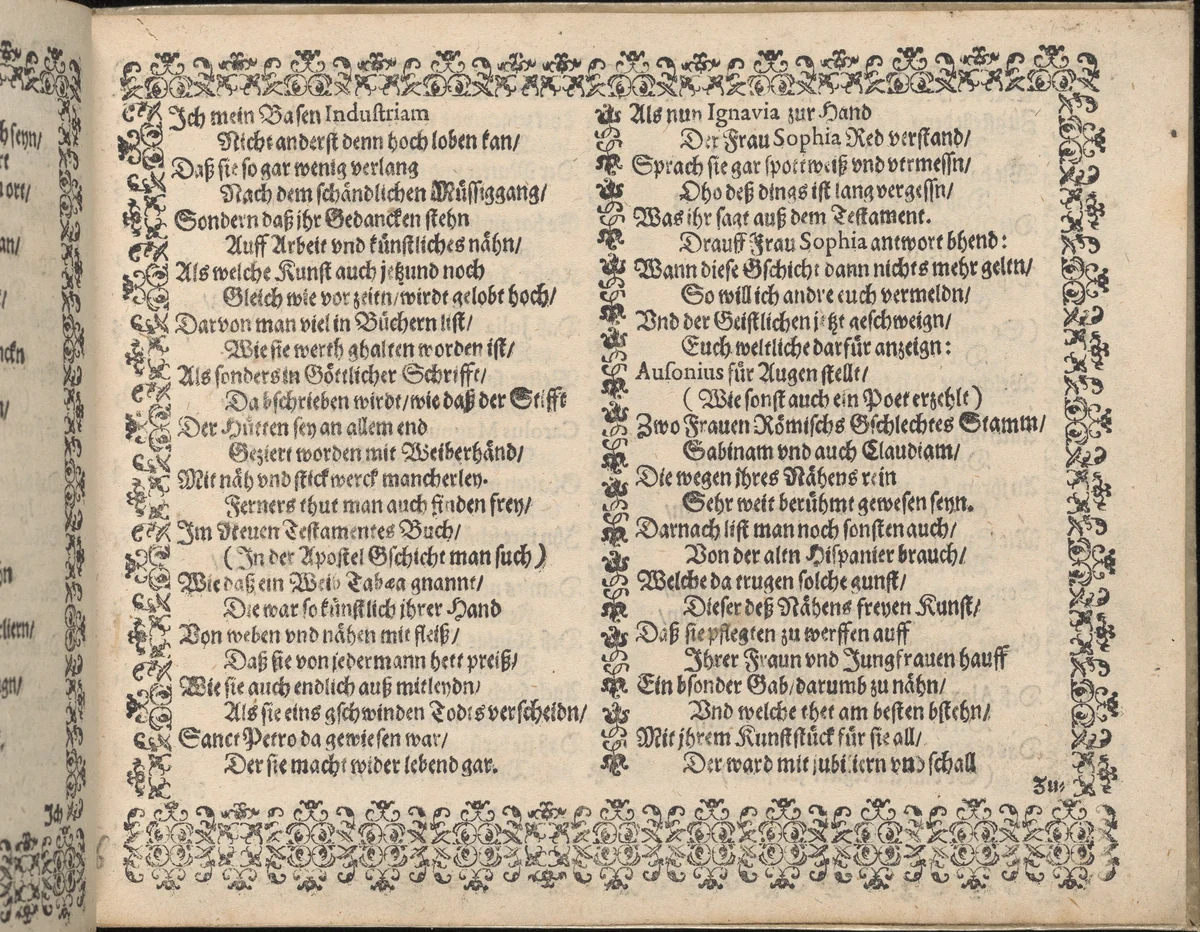 b seyn/
ort/
an/
nckn
eliern/
ign/
Jch
Jch mein Basen Industriam
Nicht anderst denn hoch loben kan/
Daß sie so gar wenig verlang
Nach dem schändlichen Müssiggang/
Sondern daß jhr Gedancken stehn
Auff Arbeit vnd künstliches nähn/
Als welche Kunst auch jetzund noch
Gleich wie vor zeitn/wirdt gelobt hoch/
Darvon man viel in Büchern list/
Wie sie werth ghalten worden ist/
Als sonders in Göttlicher Schrifft/
Da bschrieben wirdt/wie daß der Stifft
Der Hütten sey an allem end
Geziert worden mit Weiberhänd/
Mit näh vnd stickwerck mancherley.
Ferners thut man auch finden frey/
Jm Neuen Testamentes Buch/
(Jn der Apostel Gschicht man such)
Wie daß ein Weib Tabæa gnannt/
Die war so künstlich jhrer Hand
Von weben vnd nähen mit fleiß/
Daß sie von jedermann hett preiß/
Wie sie auch endlich auß mitleydn/
Als sie eins gschwinden Todts verscheidn/
Sanct Petro da gewiesen war/
Der sie macht wider lebend gar.
Als nun Ignavia zur Hand
Der Frau Sophia Red verstand/
Sprach sie gar spottweiß vnd vermessn/
Oho deß dings ist lang vergessn/
Was ihr sagt auß dem Testament.
Drauff Frau Sophia antwort bhend:
Wann diese Gschicht dann nichts mehr geltn/
So will ich andre euch vermeldn/
Vnd der Geistlichen jetzt geschweign/
Euch weltliche darfür anzeign:
Ausonius für Augen stellt/
(Wie sonst auch ein Poet erzehlt)
Zwo Frauen Römischs Gschlechtes Stamm/
Sabinam vnd auch Claudiam/
Die wegen ihres Nähens rein
Sehr weit berühmt gewesen seyn.
Darnach list man noch sonsten auch/
Von der altn Hispanier brauch/
Welche da trugen solche gunst/
Dieser deß Nähens freyen Kunst/
Daß sie pflegten zu werffen auff
Jhrer Fraun vnd Jungfrauen hauff
Ein bsonder Gab/darumb zu nähn/
Vnd welche thet am besten bstehn/
Mit jhrem Kunststück für sie all/
Der ward mit jubiliern vnd schall
Zu-